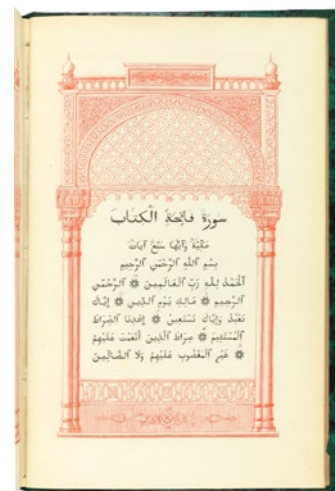 سُورَةُ فَاتِحَةِ ٱلْكِتَابِ
مَكِّيَّةٌ وَآيُهَا سَبْعُ آيَاتٍ
بِسْمِ ٱللَّهِ ٱلرَّحْمٰنِ ٱلرَّحِيمِ
اَلْحَمْدُ لِلّٰهِ رَبِّ ٱلْعَالَمِينَ ۞ اَلرَّحْمٰنِ
ٱلرَّحِيمِ ۞ مَالِكِ يَوْمِ ٱلدِّينِ ۞ إِيَّاكَ
نَعْبُدُ وَإِيَّاكَ نَسْتَعِينُ ۞ إِهْدِنَا ٱلصِّرَاطَ
ٱلْمُسْتَقِيمَ ۞ صِرَاطَ ٱلَّذِينَ أَنْعَمْتَ عَلَيْهِمْ
۞ غَيْرِ ٱلْمَغْضُوبِ عَلَيْهِمْ وَلَا ٱلضَّالِّينَ